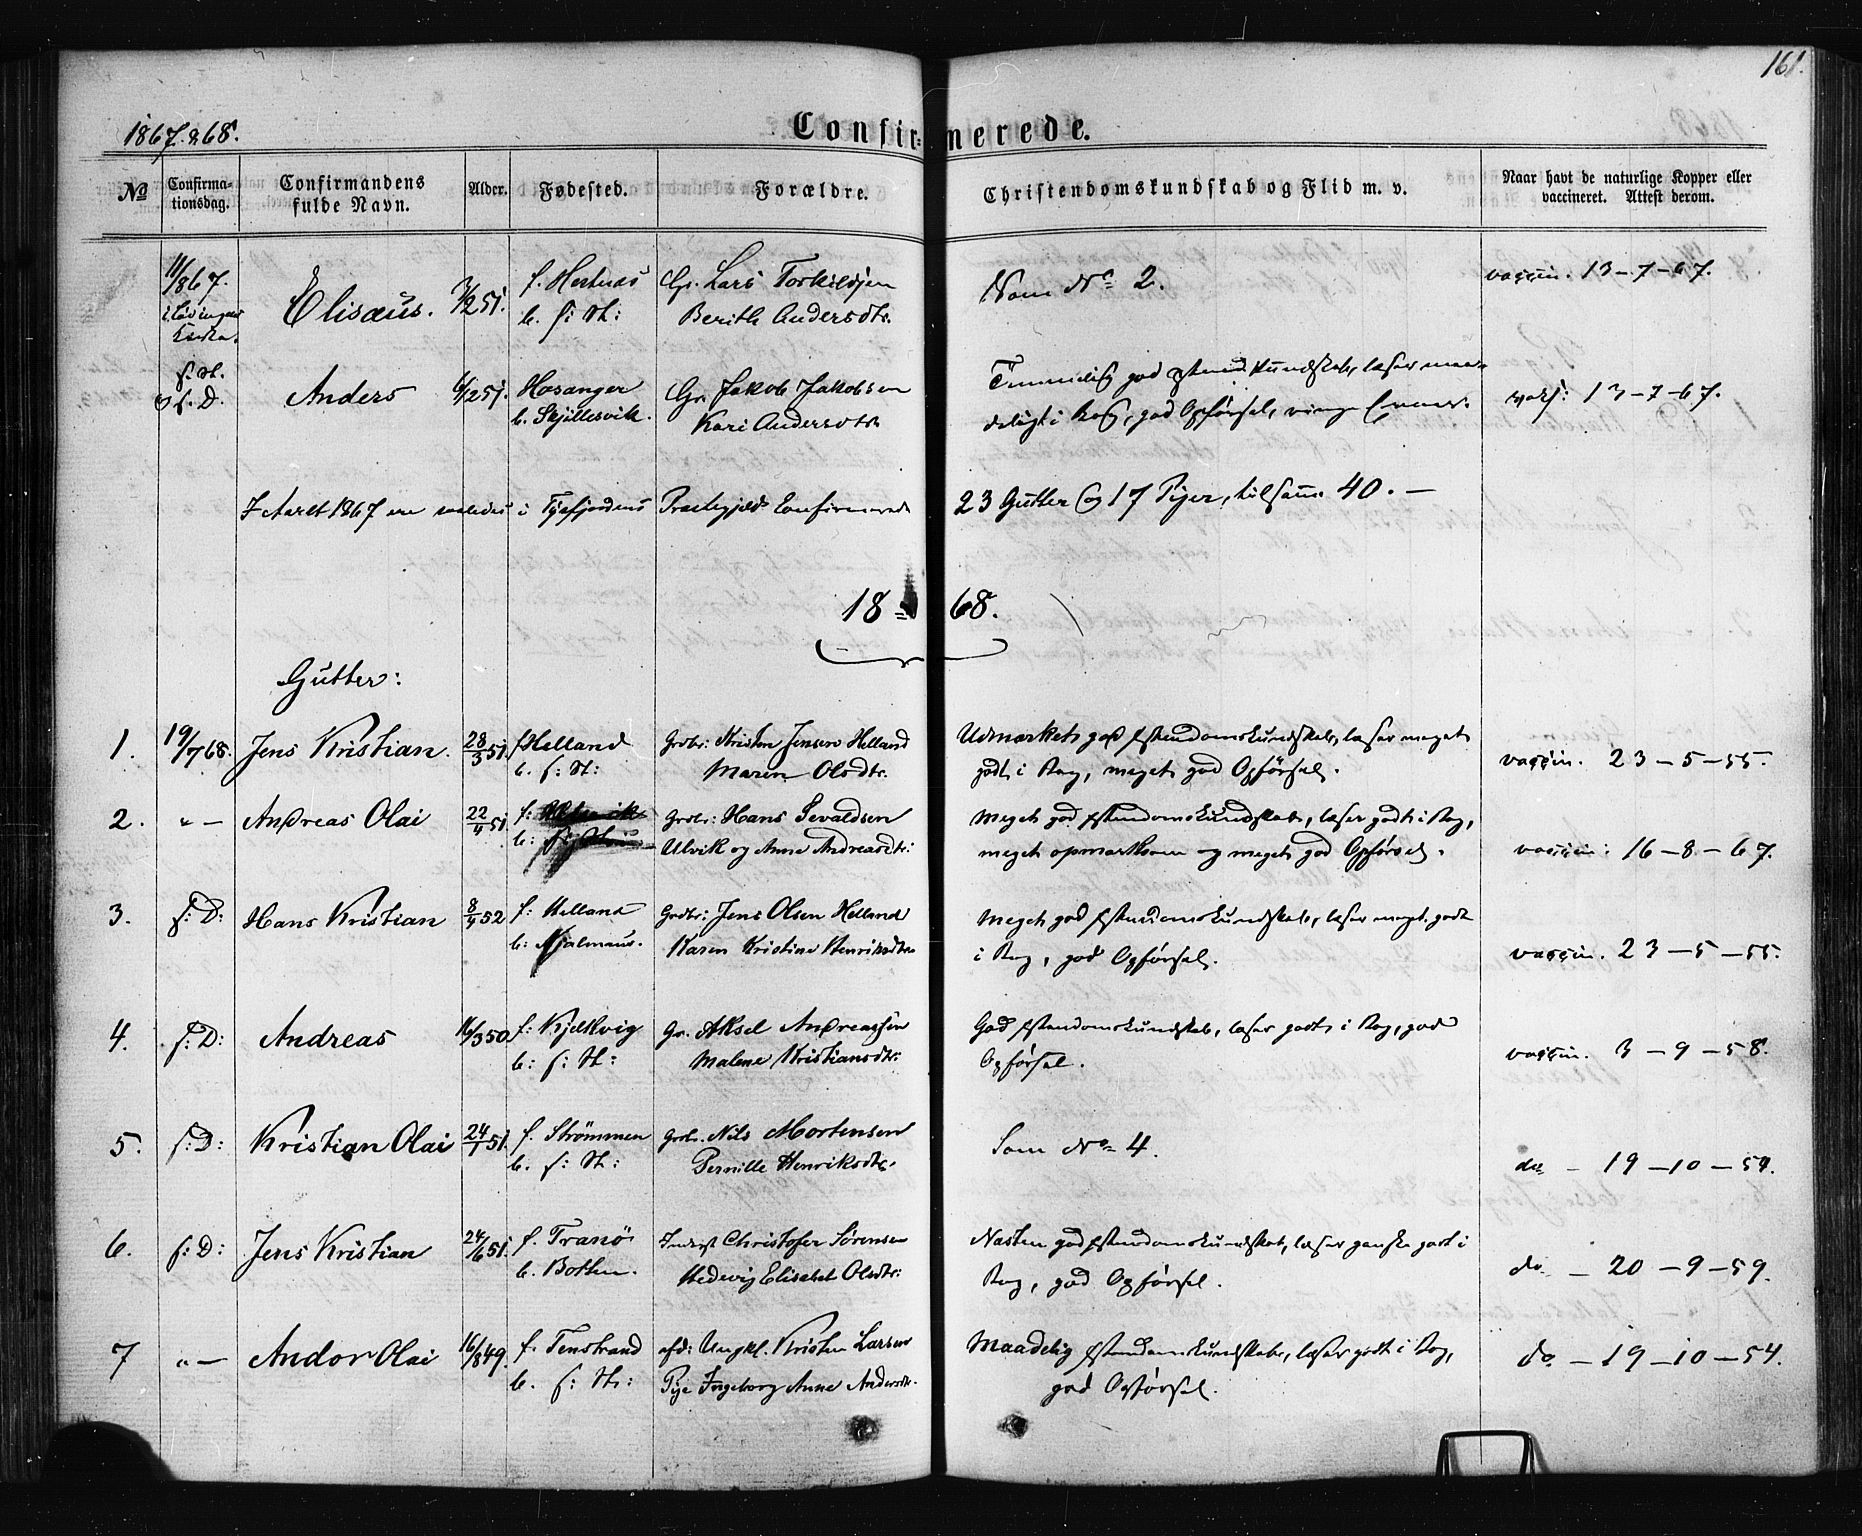 161.
1867 & 68.
Confir= merede.
No
Confirma-
tionsdag.
Confirmandens
fulde Navn.
Alder.
Fødested.
Forældre.
Christendomskundskab og Flid m. v.
Naar havt de naturlige Kopper eller
vaccineret. Attest derom.
11/8 67. Elisæus. 51. f. b. f: St: Gr. Lars Torkildsen Berith Andersdtr. Som No 2. vaccin. 13-7-67.
f. St.
s. D. Anders 6/2 51. Hasanger b. Skjellesvik. Gr. Jakob Jakobsen Kari Andersdtr. Temmelig god Kundskab, læser maa-
deligt i Bog, god Opførsel, ringe Evner. vacs: 13-7-67.
I Aaret 1867 ere saaledes i Tysfjordens Præstegjeld Confirmerede 23 Gutter og 17 Piger, tilsam. 40. —
18= 68.
Gutter:
1. 19/7 68. Jens Kristian. 28/3 51. f: Helland b. f: St: Grdbr: Kristen Jensen Helland Maren Olsdtr. Udmærket god Xstendomskundskab, læser meget
godt i Bog, meget god Opførsel. vaccin. 23-5-55.
2. "— Andreas Olai 22/4 51. f: b: Grdbr: Hans Sevaldsen
Ulvik og Anne Andreasdtr: Meget god Xstendomskundskab, læser godt i Bog,
meget opmærksom og meget god Opførsel. vaccin: 16-8-67.
3. s: D: Hans Kristian 8/4 52 f: Helland b: Grdbr: Jens Olsen Helland
Karen Kristine Henriksdtr. Meget god Xstendomskundskab, læser meget godt
i Bog, god Opførsel. vaccin. 23-5-55.
4. s: D: Andreas 16/3 50. f: Kjelkvig b: f: St: Gr. Aksel Andreassen
Malene Kristiansdtr: God Xstendomskundskab, læser godt i Bog, god
Opførsel. vaccin. 3-9-58.
5. s: D: Kristian Olai 51. f. Strømmen b. f: St: Grdbr. Nils Mortensen
Pernille Henriksdtr. Som No 4. do - 19-10-54.
6. s: D: Jens Kristian 24/6 51. f. Tranö b. Botten. Christofer Sörensen
Hedevig Elisabet Olsdtr: Næsten god Xstendomskundskab, læser ganske godt i
Bog, god Opførsel. do - 20-9-59.
7 "— Andor Olai 16/8 49. f. Tenstrand b. f: St: afd: Ungkl. Kristen Larsen
Pige Ingeborg Anne Andersdtr. Maadelig Xstendomskundskab, læser godt i Bog,
god Opførsel. do - 19-10-54.